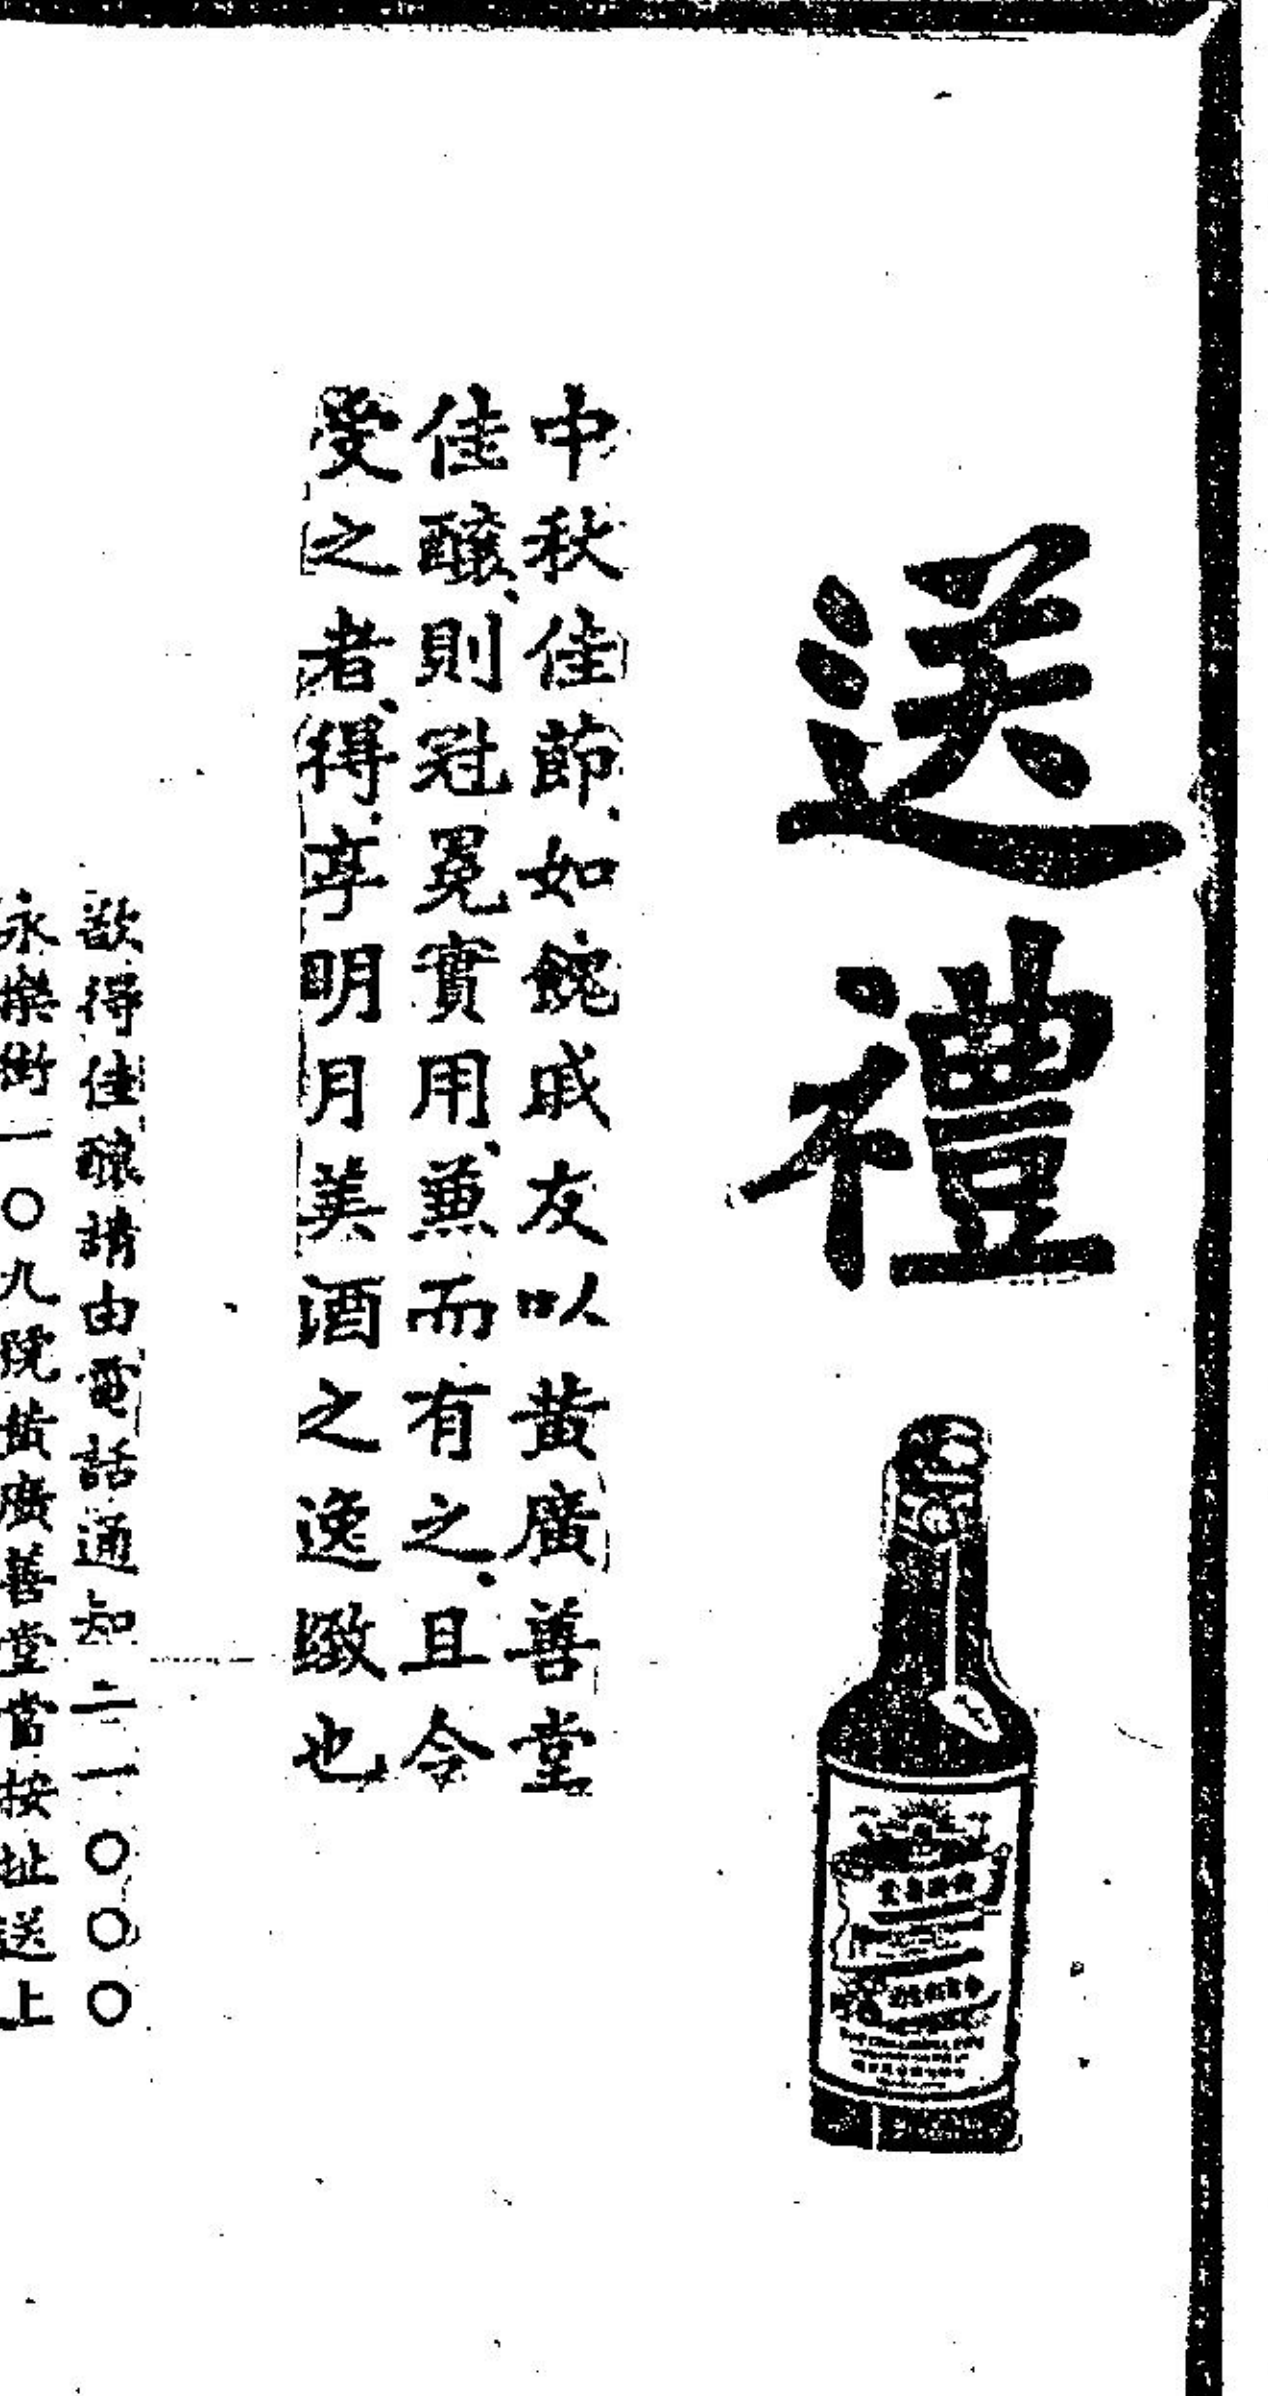 送禮
中秋佳節、如餽戚友以黃廣善堂
佳釀、則冠冕實用、兼而有之、且令
受之者、得、享明月美酒之逸緻也
欲得佳釀請由電話通知二一〇〇〇
永樂街一〇九號黃廣善堂當按址送上